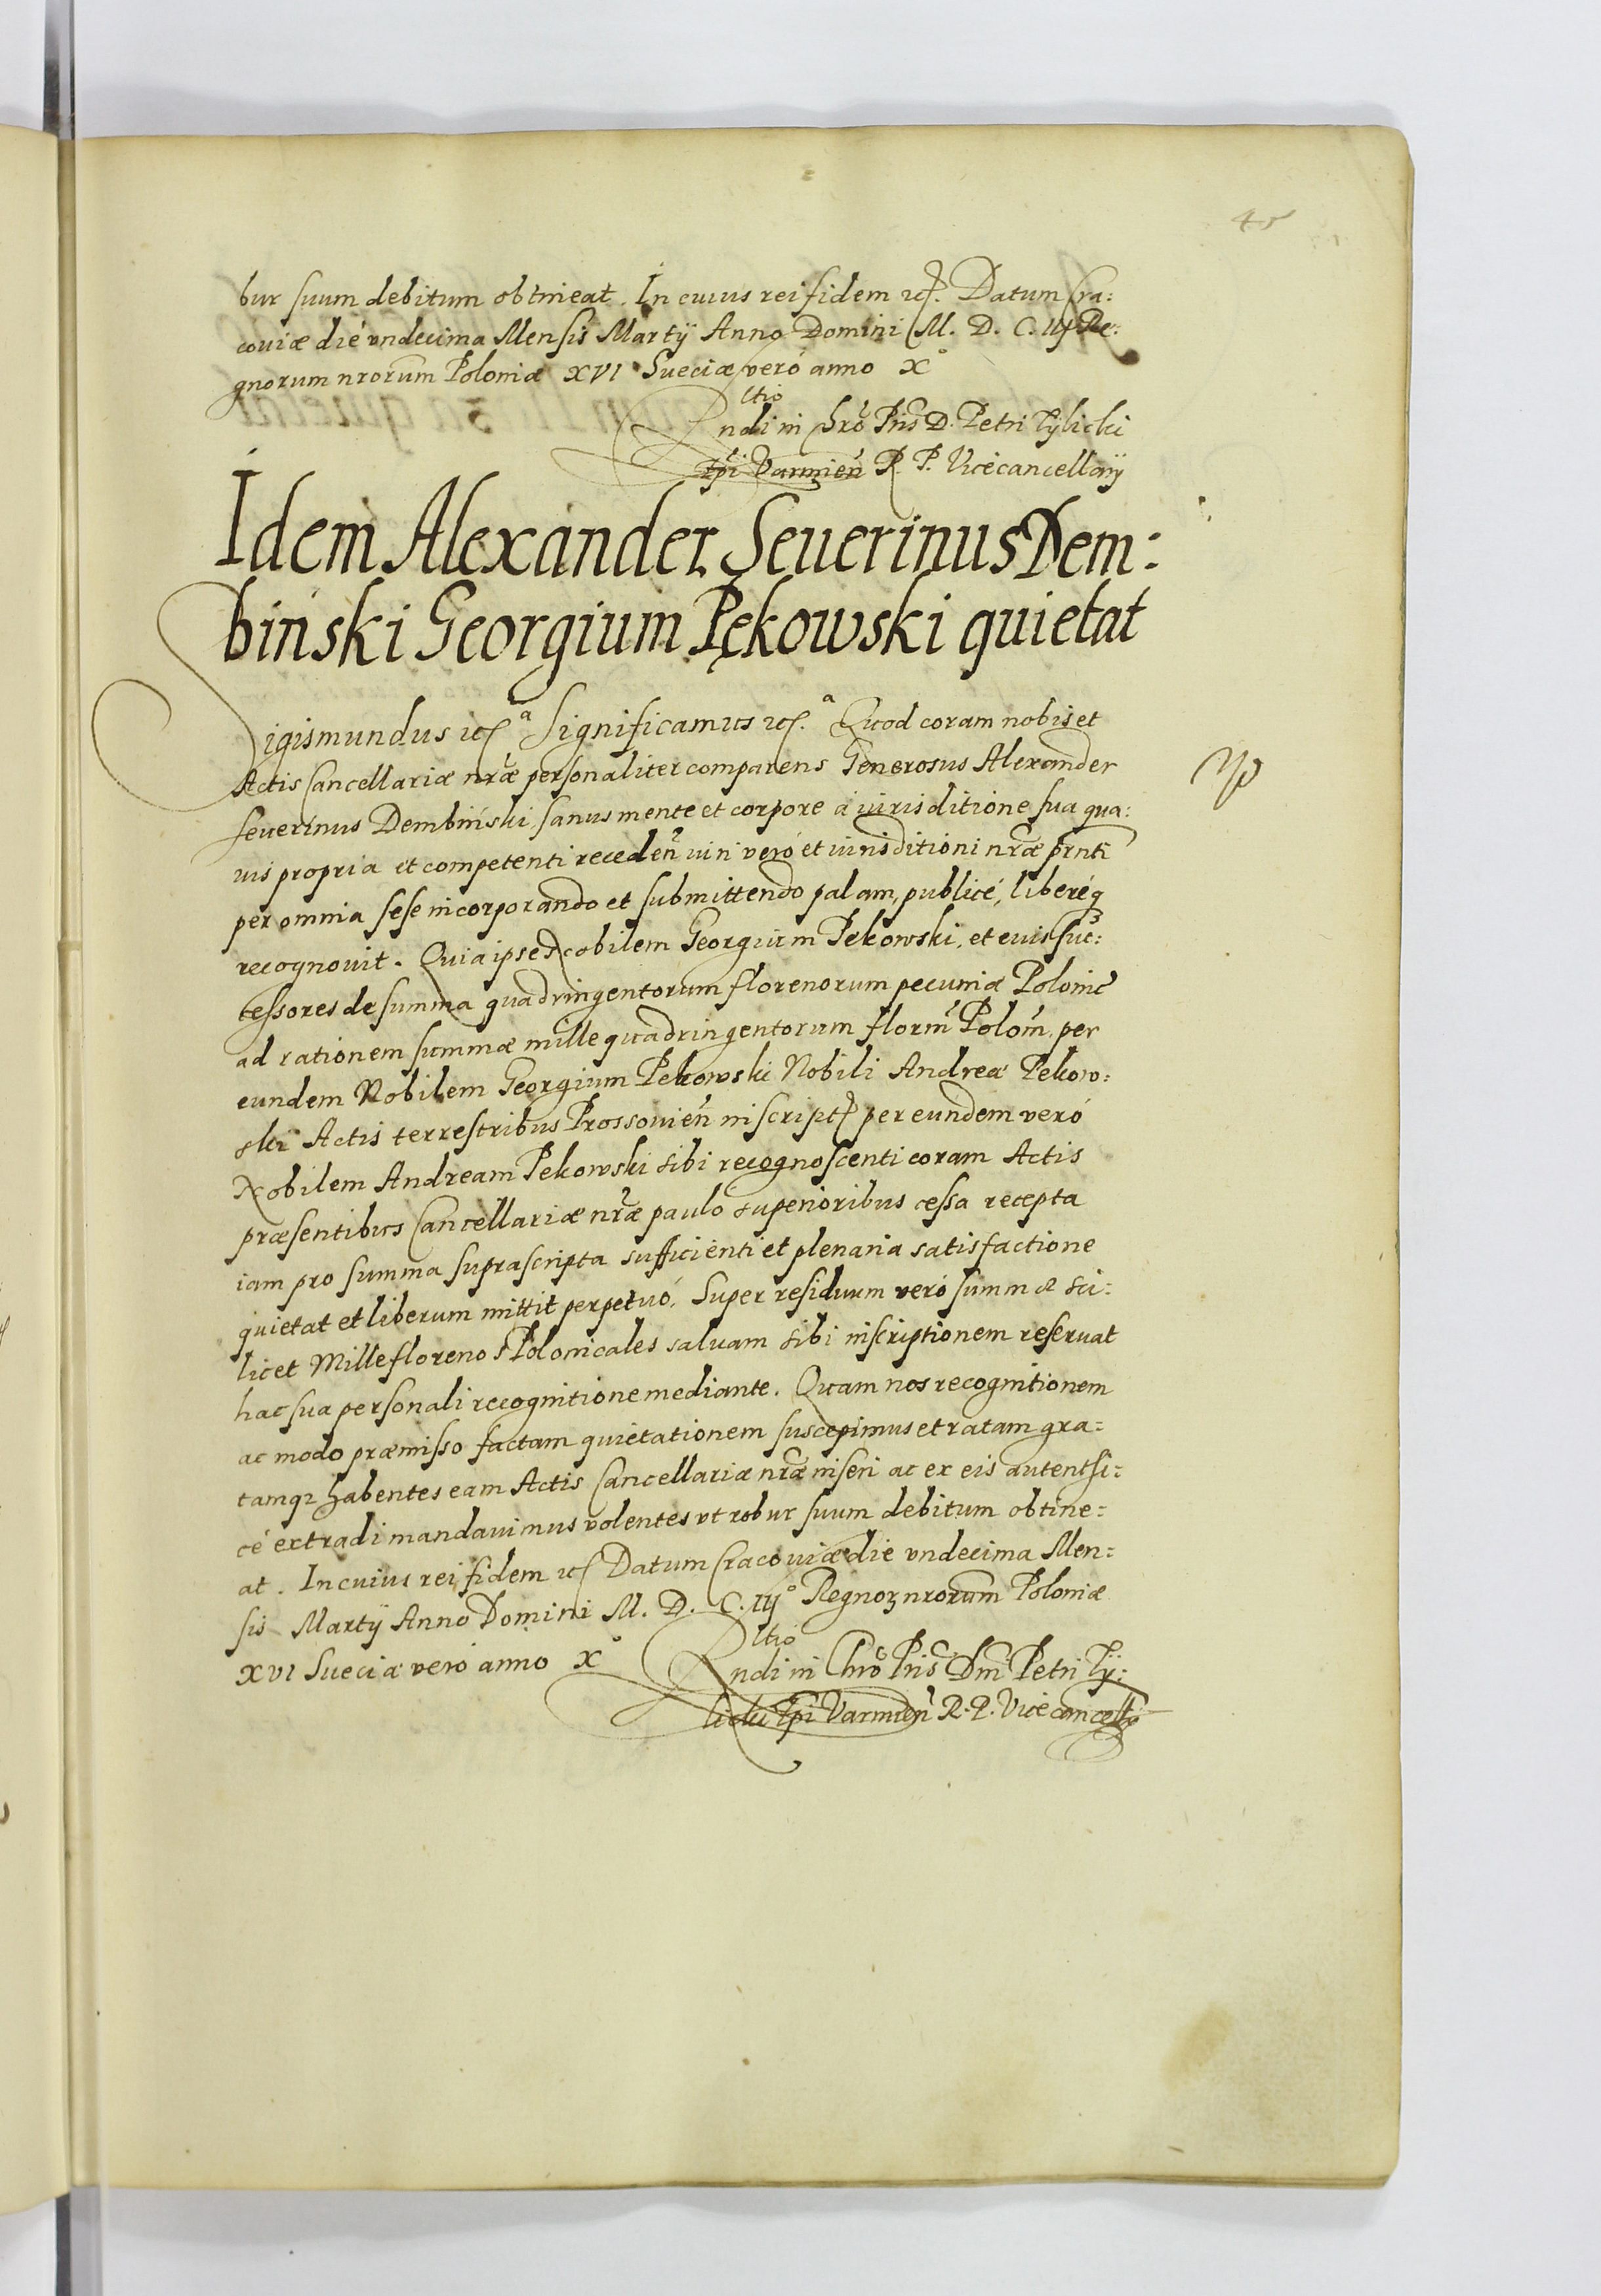 45
bur suum debitum obtineat. In cuius rei fidem etc. Datum Cra:
couiæ die vndecima Mensis Martÿ Anno Domini M. D. C. IIJ Re:
gnorum nrorum Poloniæ XVI Sueciæ veró anno X°
Rltio
ndi in Chrō Pris D. Petri Tÿlicki
Epi Varmień R. P. Vicecancellarÿ
Idem Alexander Seuerinus Dem:
biński Georgium Pękowski quietat
Sigismundus etc.ª Significamus etc.ª Quod coram nobis et
Actis Cancellariæ nræ personaliter comparens Generosus Alexander
Seuerinus Dembiński, sanus mente et corpore á iurisditione sua qua:
uis propria et competenti receden̄ iuri veró et iurisditioni nræ prnti
per omnia sese incorporando et submittendo palam, publicé, liberéq
recognouit. Quia ipse Nobilem Georgium Pekowski, et euis suc:
cessores de summa quadringentorum florenorum pecuniæ Polonic
ad rationem summæ mille quadringentorum florm̄ Polon̄. per
eundem Nobilem Georgium Pekowski Nobili Andreæ Pekow:
ski Actis terrestribus Prossouien̄ inscript per eundem veró
Nobilem Andream Pekowski sibi recognoscenti coram Actis
præsentibus Cancellariæ nræ paulo superioribus cessa recepta
iam pro summa suprascripta sufficienti et plenaria satisfactione
quietat et liberum mittit perpetuó. Super residuum veró summæ sci:
licet Mille florenos Polonicales saluam sibi inscriptionem reseruat
hac sua personali recognitione mediante. Quam nos recognitionem
ac modo præmisso factam quietationem suscepimus et ratam gra:
tamqʒ habentes eam Actis Cancellariæ nræ inseri ac ex eis autenti:
cé extradi mandauimus volentes vt robur suum debitum obtine:
at. In cuius rei fidem etc Datum Cracouiæ die vndecima Men:
sis Martÿ Anno Domini M. D. C. IIJ° Regnoʒ nrorum Poloniæ
XVI Sueciæ veró anno X°
Rltio
ndi in Chrō Pris Dni Petri Tÿ:
licki Epi Varmien̄ R. P. Vicecancell